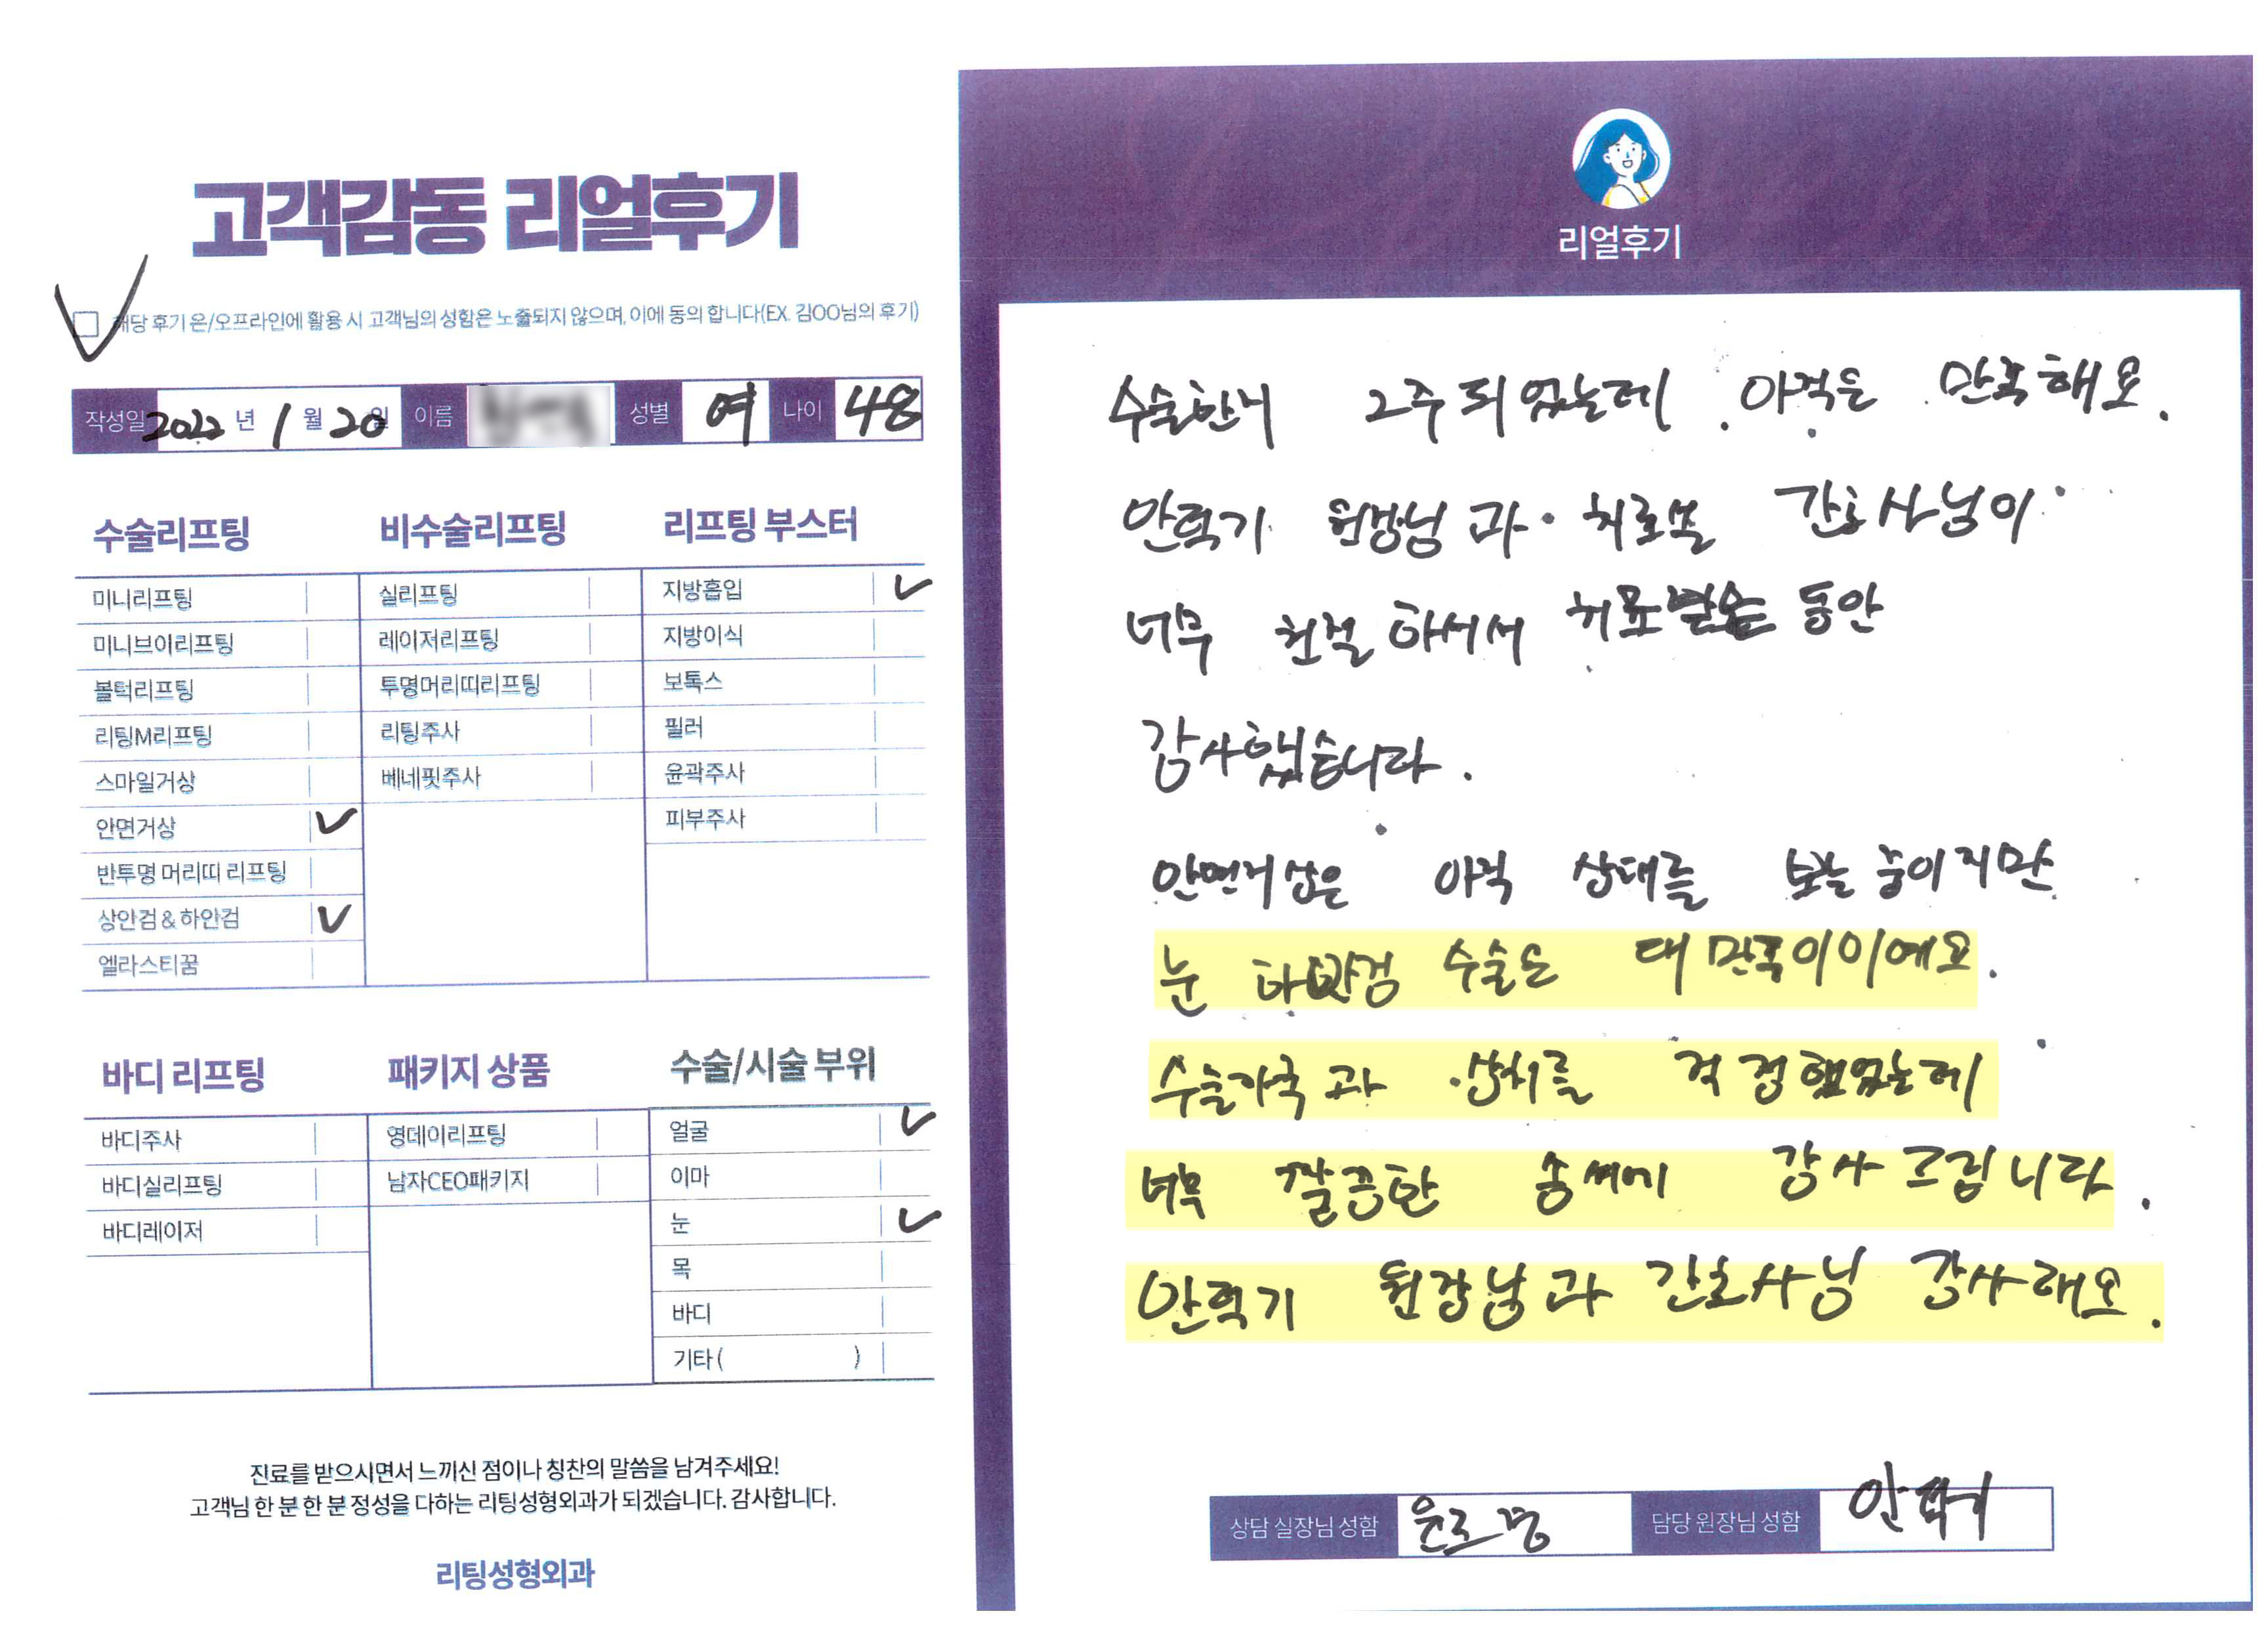 고객감동 리얼후기
해당 후기 온/오프라인에 활용 시 고객님의 성함은 노출되지 않으며, 이에 동의 합니다(EX. 김OO님의 후기)
작성일 2022 년 1 월 20 일 이름 성별 여 나이 48
수술리프팅
미니리프팅
미니브이리프팅
볼턱리프팅
리팅M리프팅
스마일거상
안면거상
반투명 머리띠 리프팅
상안검&하안검
엘라스티꿈
비수술리프팅
실리프팅
레이저리프팅
투명머리띠리프팅
리팅주사
베네핏주사
리프팅 부스터
지방흡입
지방이식
보톡스
필러
윤곽주사
피부주사
바디 리프팅
바디주사
바디실리프팅
바디레이저
패키지 상품
영데이리프팅
남자CEO패키지
수술/시술 부위
얼굴
이마
눈
목
바디
기타( )
진료를 받으시면서 느끼신 점이나 칭찬의 말씀을 남겨주세요!
고객님 한 분 한 분 정성을 다하는 리팅성형외과가 되겠습니다. 감사합니다.
리팅성형외과
리얼후기
수술한지 2주 되었는데. 아직은 만족해요.
원장님과 치료실 간호사님이
너무 친절하셔서 치료받을 동안
감사했습니다.
안면거상은 아직 상태를 보는 중이지만
눈 하안검 수술은 대만족이이예요.
수술자국과 상처를 걱정했었는데
너무 깔끔한 솜씨에 감사드립니다.
원장님과 간호사님 감사해요.
상담 실장님 성함
담당 원장님 성함